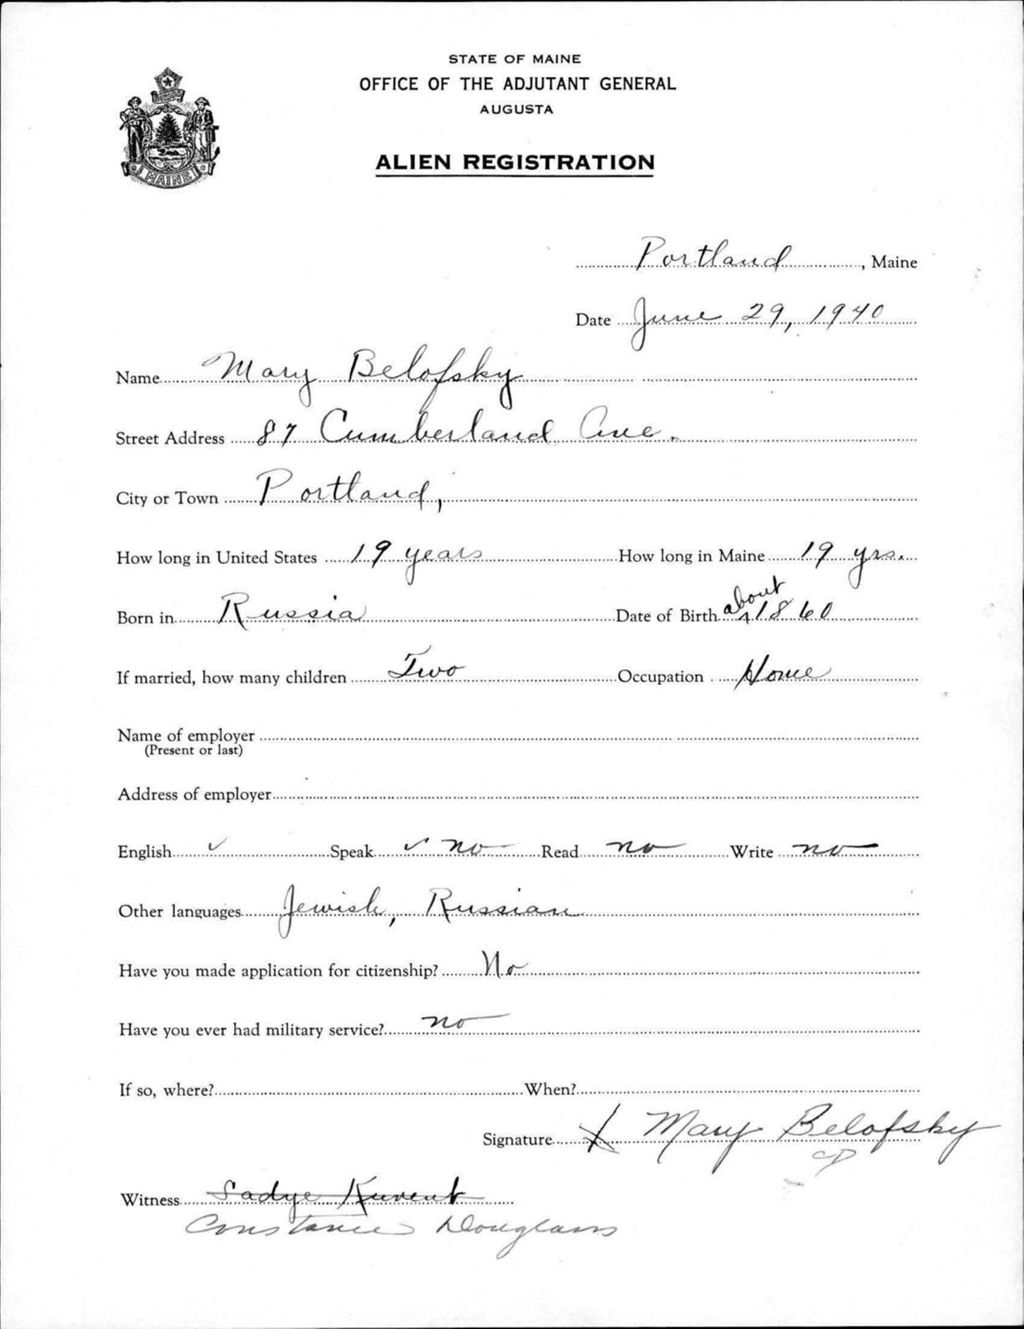 STATE OF MAINE
OFFICE OF THE ADJUTANT GENERAL
AUGUSTA
ALIEN REGISTRATION
MAINE
Portland, Maine
Date June 29, 1940
Name Mary Belofsky
Street Address 87 Cumberland Ave.
City or Town Portland,
How long in United States 19 years How long in Maine 19 yrs.
Born in Russia Date of Birth about 1860
If married, how many children Two Occupation Home
Name of employer
(Present or last)
Address of employer
English ✓ Speak ✓ no Read no Write no
Other languages Jewish, Russian
Have you made application for citizenship? No
Have you ever had military service? no
If so, where? When?
Signature X Mary Belofsky
CD
Witness Sadye
Constance Douglass